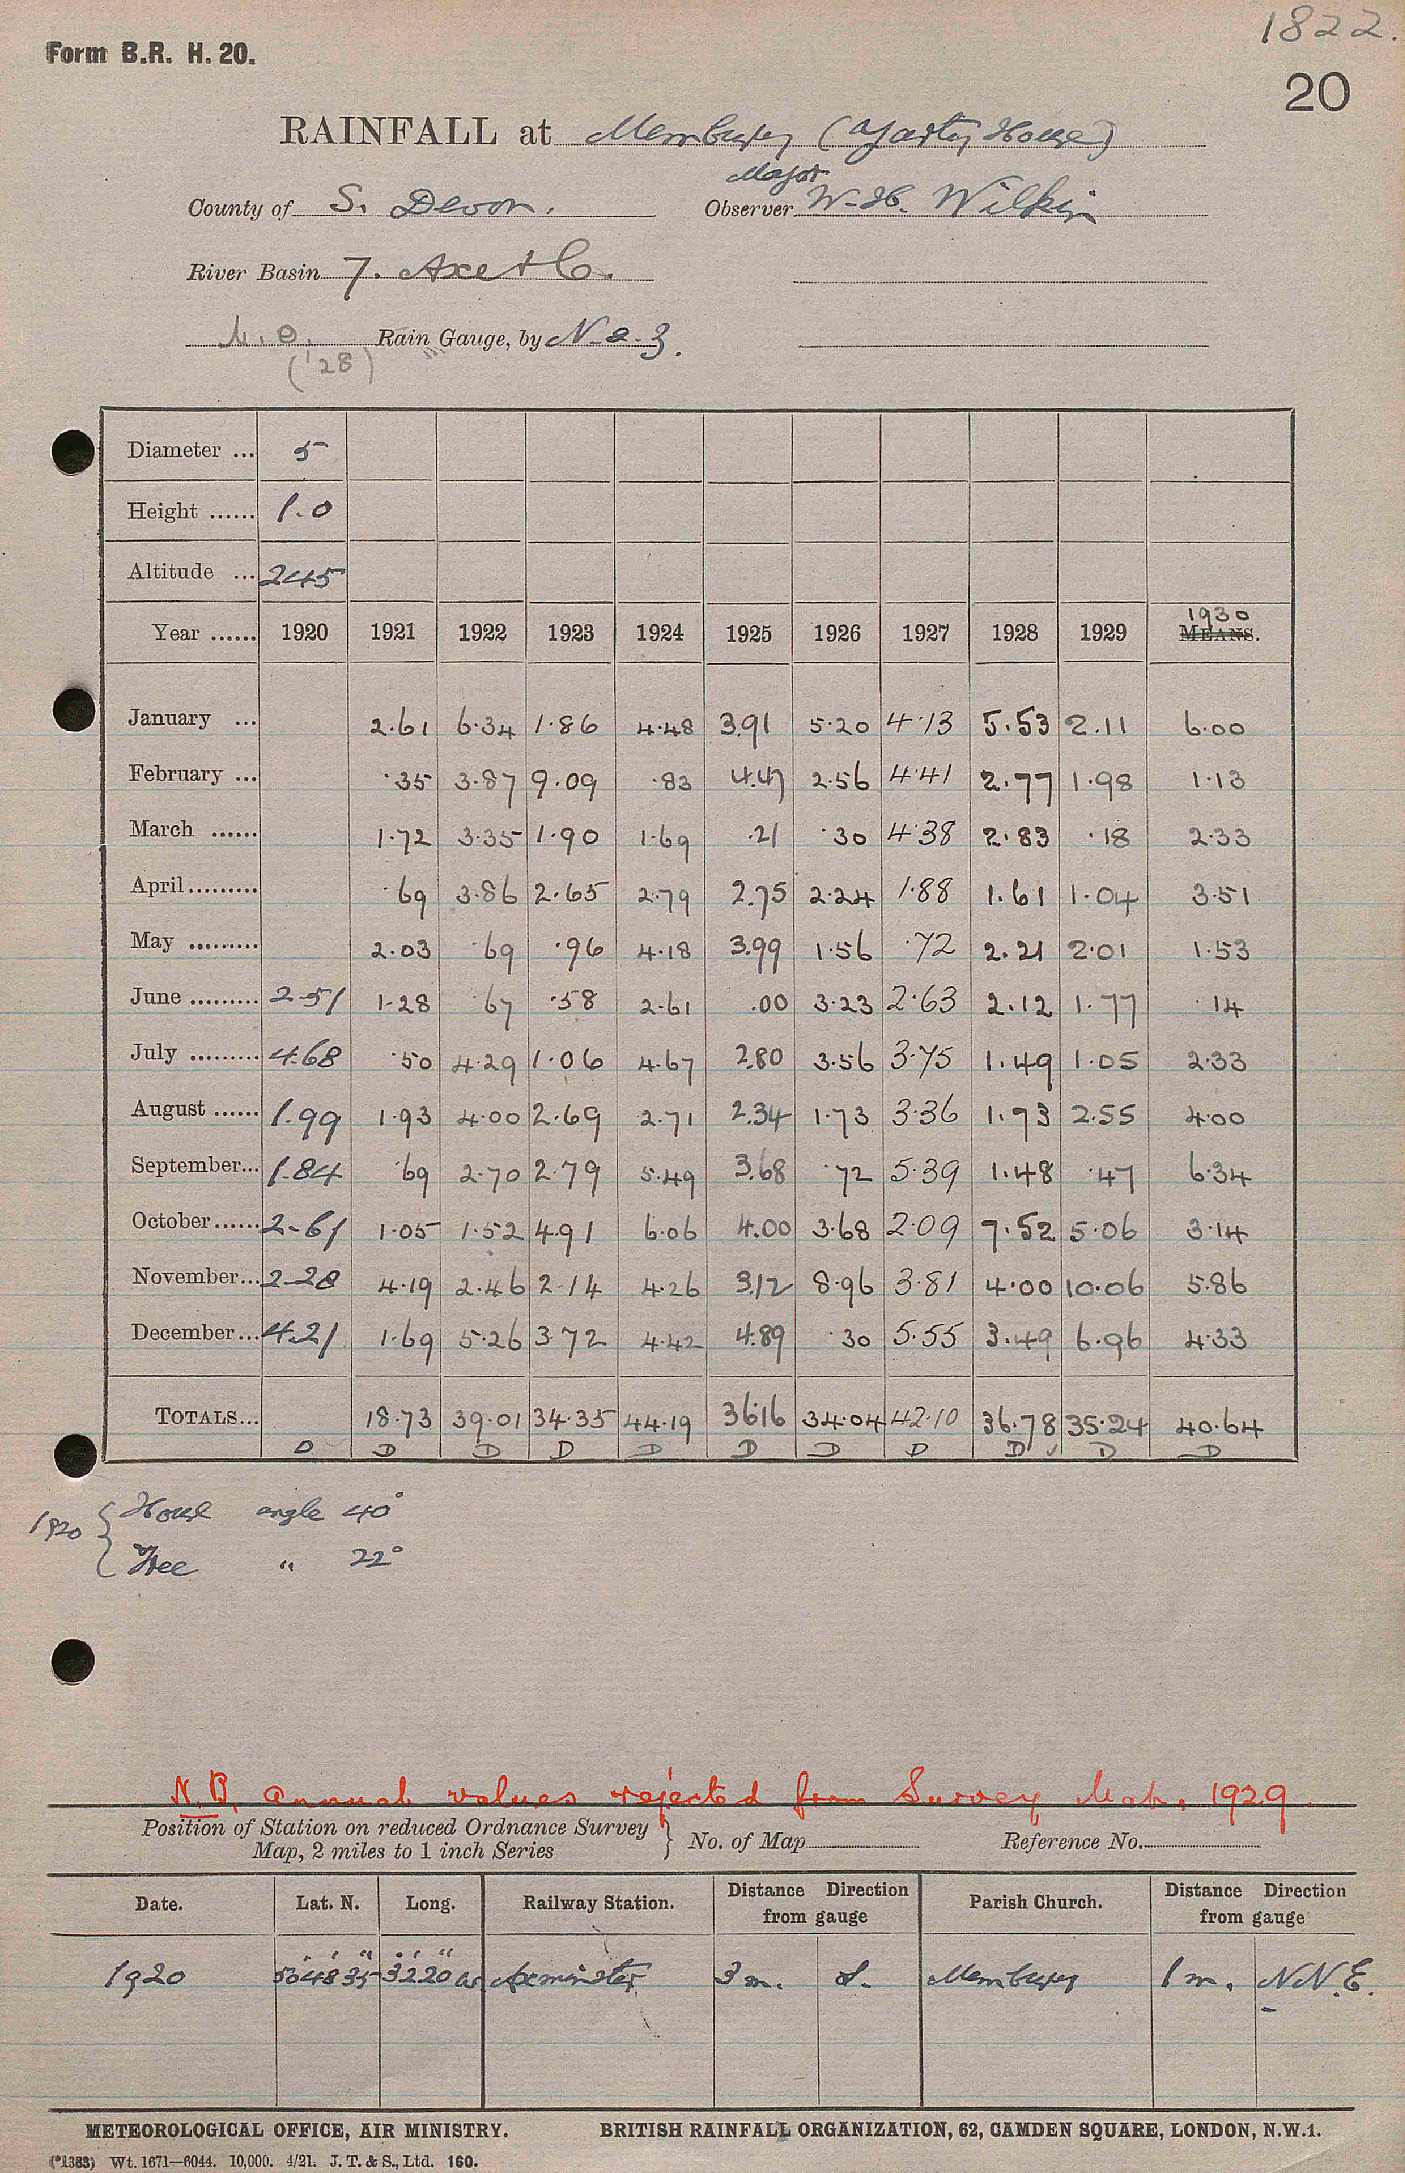 1822.
Form B.R. H. 20.
20
RAINFALL at Membury (Yarty House)
Major
County of S. Devon. Observer W. H. Wilkin
River Basin 7. Axe & Co.
M.O. Rain Gauge, by N & Z.
('28)
Diameter ... 5
Height ...... 1.0
Altitude ... 245
1930
Year ...... 1920 1921 1922 1923 1924 1925 1926 1927 1928 1929 MEANS.
January ... 2.61 6.34 1.86 4.48 3.91 5.20 4.13 5.53 2.11 6.00
February ... .35 3.87 9.09 .83 4.47 2.56 4.41 2.77 1.98 1.13
March ...... 1.72 3.35 1.90 1.69 .21 .30 4.38 2.83 .18 2.33
April ......... .69 3.86 2.65 2.79 2.75 2.24 1.88 1.61 1.04 3.51
May ......... 2.03 .69 .96 4.18 3.99 1.56 .72 2.21 2.01 1.53
June ......... 2.51 1.28 .67 .58 2.61 .00 3.23 2.63 2.12 1.77 .14
July ......... 4.68 .50 4.29 1.06 4.67 2.80 3.56 3.75 1.49 1.05 2.33
August ...... 1.99 1.93 4.00 2.69 2.71 2.34 1.73 3.36 1.73 2.55 4.00
September... 1.84 .69 2.70 2.79 5.49 3.68 .72 5.39 1.48 .47 6.34
October ...... 2.61 1.05 1.52 4.91 6.06 4.00 3.68 2.09 7.52 5.06 3.14
November... 2.28 4.19 2.46 2.14 4.26 3.12 8.96 3.81 4.00 10.06 5.86
December... 4.21 1.69 5.26 3.72 4.42 4.89 .30 5.55 3.49 6.96 4.33
TOTALS... 18.73 39.01 34.35 44.19 36.16 34.04 42.10 36.78 35.24 40.64
D D D D D D D D D ✓ D D
1920 { House angle 40°
Tree " 22°
N.B. Annual values rejected from Survey Map. 1929
Position of Station on reduced Ordnance Survey
Map, 2 miles to 1 inch Series } No. of Map Reference No.
Date. Lat. N. Long. Railway Station. Distance Direction from gauge Parish Church. Distance Direction from gauge
1920 50° 48' 35" 3° 2' 20" W Axminster 3 m. S. Membury 1 m. N.N.E.
METEOROLOGICAL OFFICE, AIR MINISTRY. BRITISH RAINFALL ORGANIZATION, 62, CAMDEN SQUARE, LONDON, N.W.1.
(*1383) Wt. 1671—6044. 10,000. 4/21. J. T. & S., Ltd. 160.